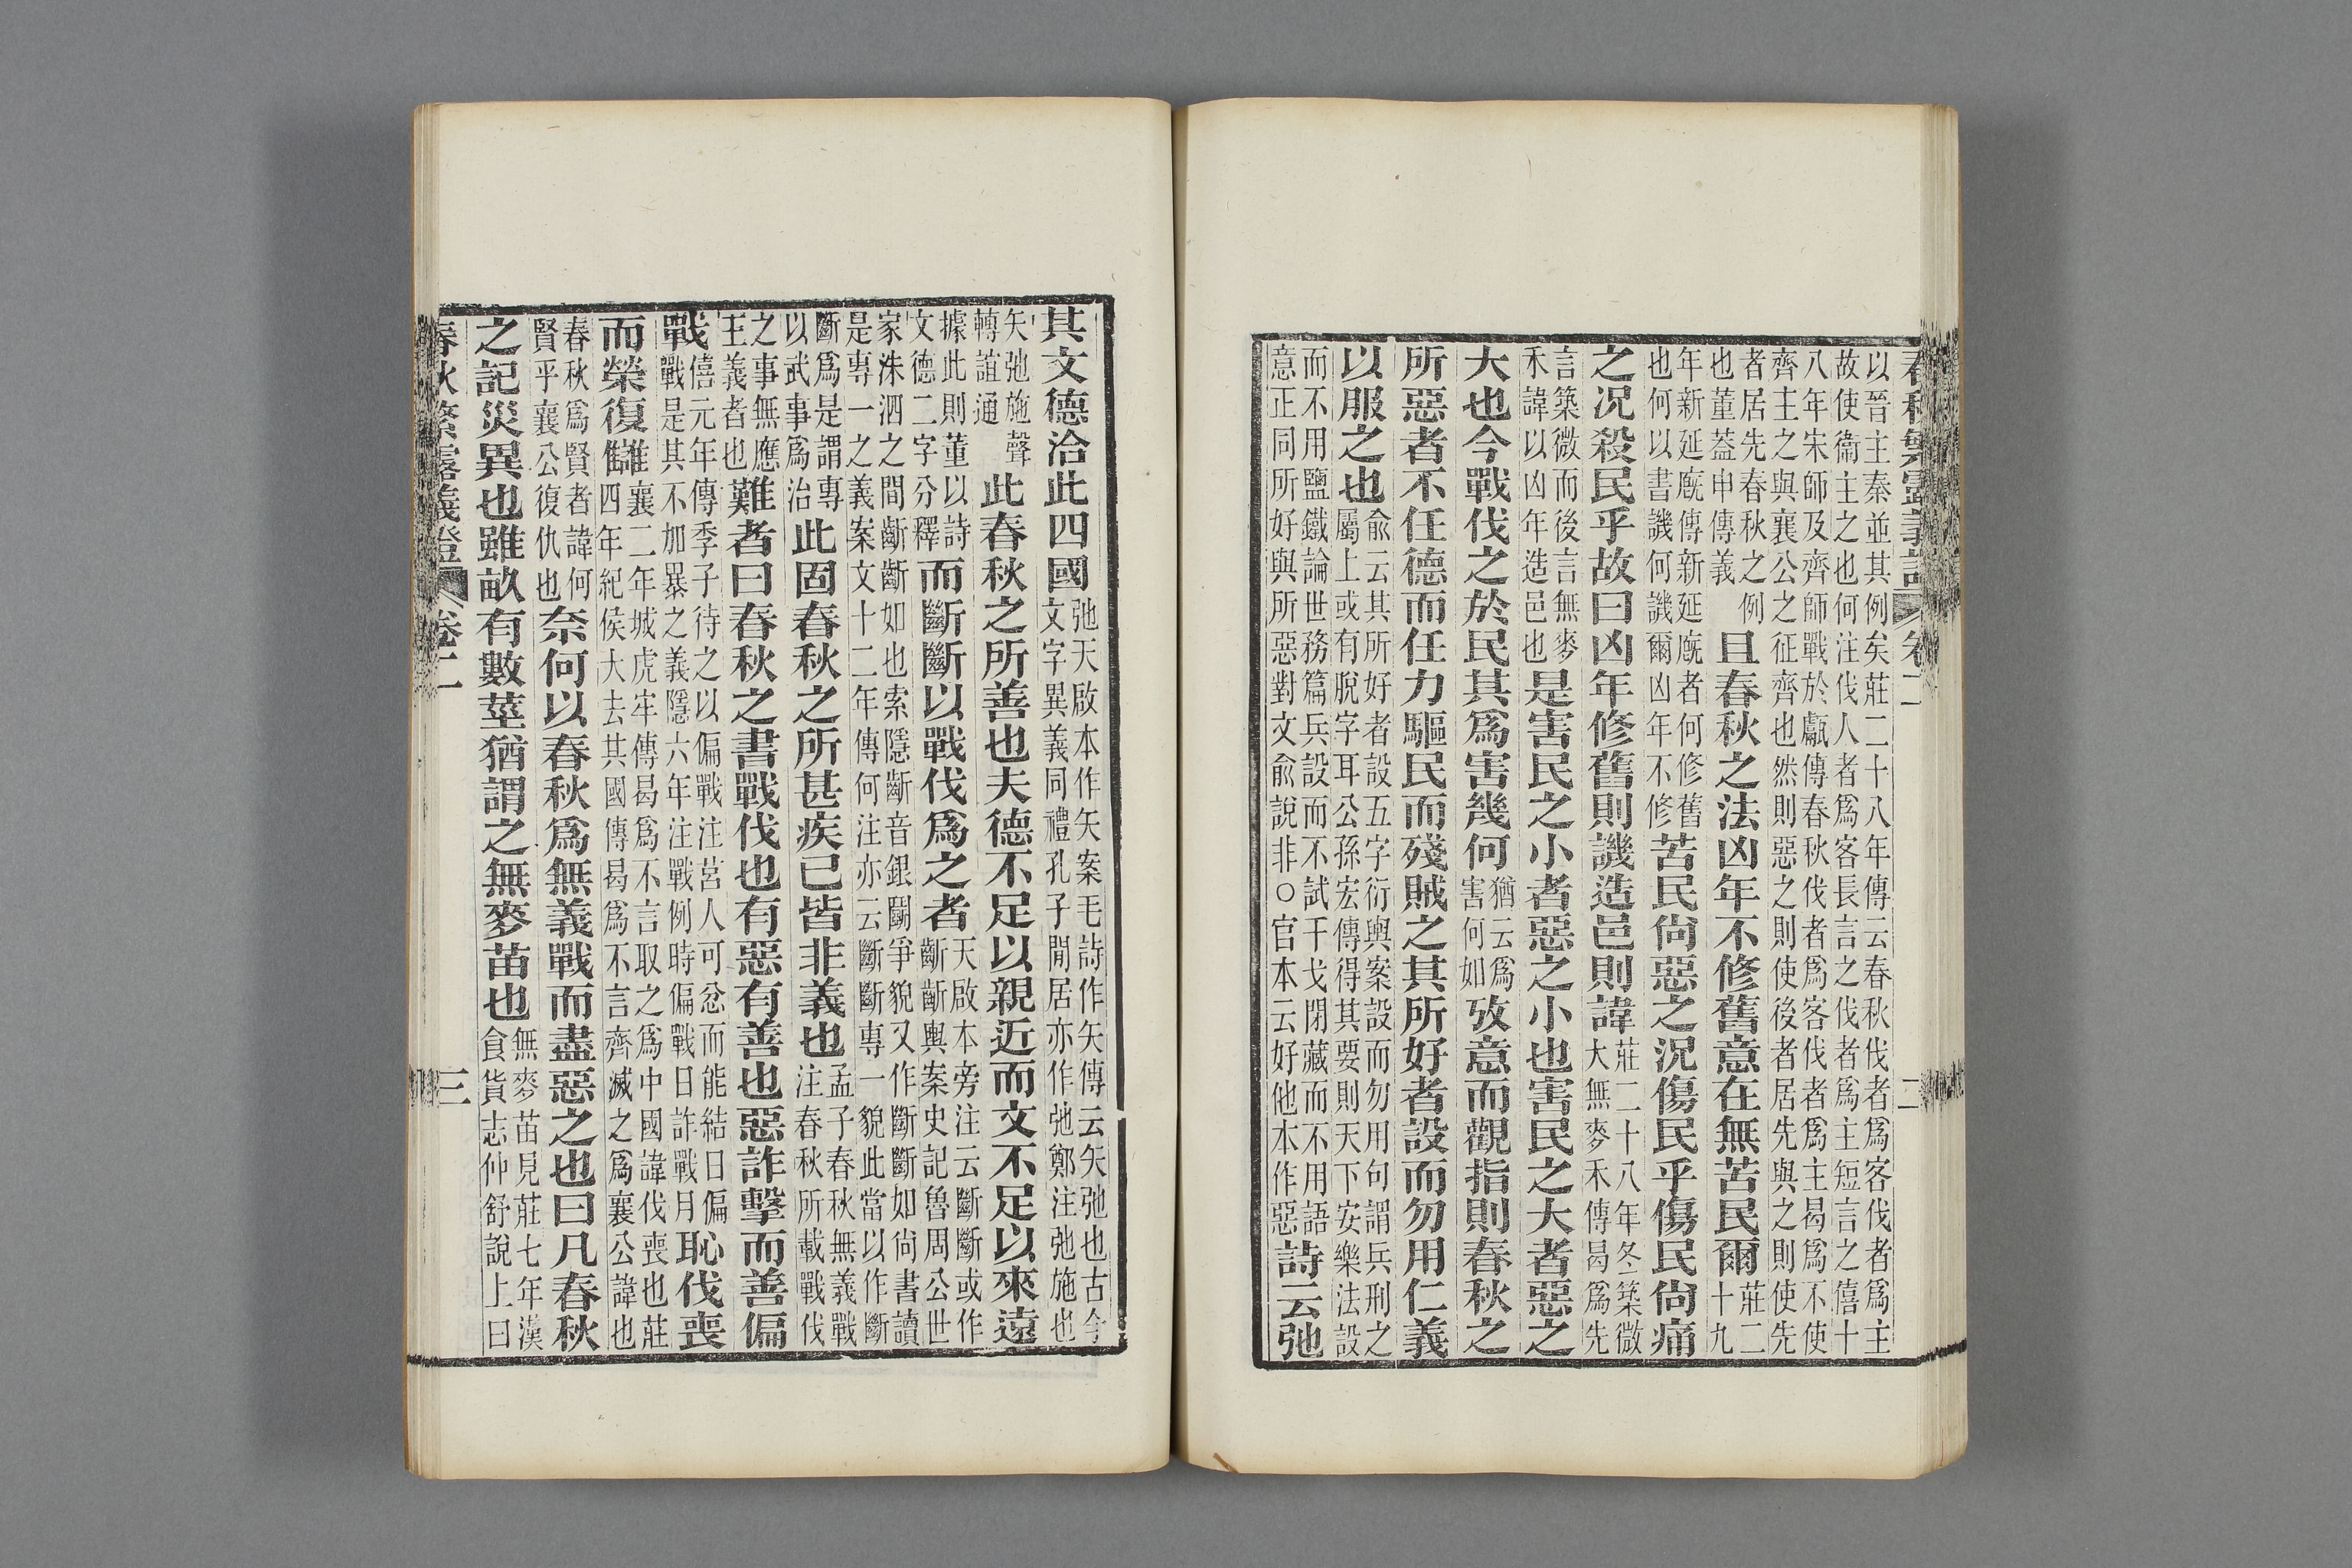 春秋繁露義證 卷二 二
以晉主秦並其例矣莊二十八年傳云春秋伐者爲客伐者爲主
故使衞主之也何注伐人者爲客長言之伐者爲主短言之僖十
八年宋師及齊師戰於甗傳春秋伐者爲客伐者爲主曷爲不使
齊主之與襄公之征齊也然則惡之則使後者居先與之則使先
者居先春秋之例也董蓋申傳義且春秋之法凶年不修舊意在無苦民爾莊二十九
年新延廐傳新延廐者何修舊也何以書譏何譏爾凶年不修苦民尙惡之況傷民乎傷民尙痛
之況殺民乎故曰凶年修舊則譏造邑則諱莊二十八年冬築微大無麥禾傳曷爲先
言築微而後言無麥禾諱以凶年造邑也是害民之小者惡之小也害民之大者惡之
大也今戰伐之於民其爲害幾何猶云爲害何如攷意而觀指則春秋之
所惡者不任德而任力驅民而殘賊之其所好者設而勿用仁義
以服之也俞云其所好者設五字衍輿案設而勿用句謂兵刑之屬上或有脫字耳公孫宏傳得其要則天下安樂法設
而不用鹽鐵論世務篇兵設而不試干戈閉藏而不用語意正同所好與所惡對文俞說非○官本云好他本作惡詩云弛
其文德洽此四國弛天啟本作矢案毛詩作矢傳云矢弛也古今文字異義同禮孔子閒居亦作弛鄭注弛施也
矢弛施聲轉誼通此春秋之所善也夫德不足以親近而文不足以來遠
據此則董以詩文德二字分釋而斷斷以戰伐爲之者天啟本旁注云斷斷或作齗齗輿案史記魯周公世
家洙泗之間齗齗如也索隱齗音銀鬭爭貌又作斷斷如尙書讀
是專一之義案文十二年傳何注亦云斷斷專一貌此當以作斷
斷爲是謂專以武事爲治此固春秋之所甚疾已皆非義也孟子春秋無義戰注春秋所載戰伐
之事無應王義者也難者曰春秋之書戰伐也有惡有善也惡詐擊而善偏
戰僖元年傳季子待之以偏戰注莒人可忿而能結日偏戰是其不加暴之義隱六年注戰例時偏戰日詐戰月恥伐喪
而榮復讎襄二年城虎牢傳曷爲不言取之爲中國諱伐喪也莊四年紀侯大去其國傳曷爲不言齊滅之爲襄公諱也
春秋爲賢者諱何賢乎襄公復仇也奈何以春秋爲無義戰而盡惡之也曰凡春秋
之記災異也雖畝有數莖猶謂之無麥苗也無麥苗見莊七年漢食貨志仲舒說上曰
春秋繁露義證 卷二 三